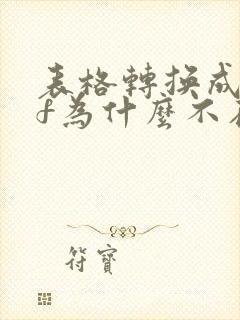 表格轉換成
f為什麼不
符寶